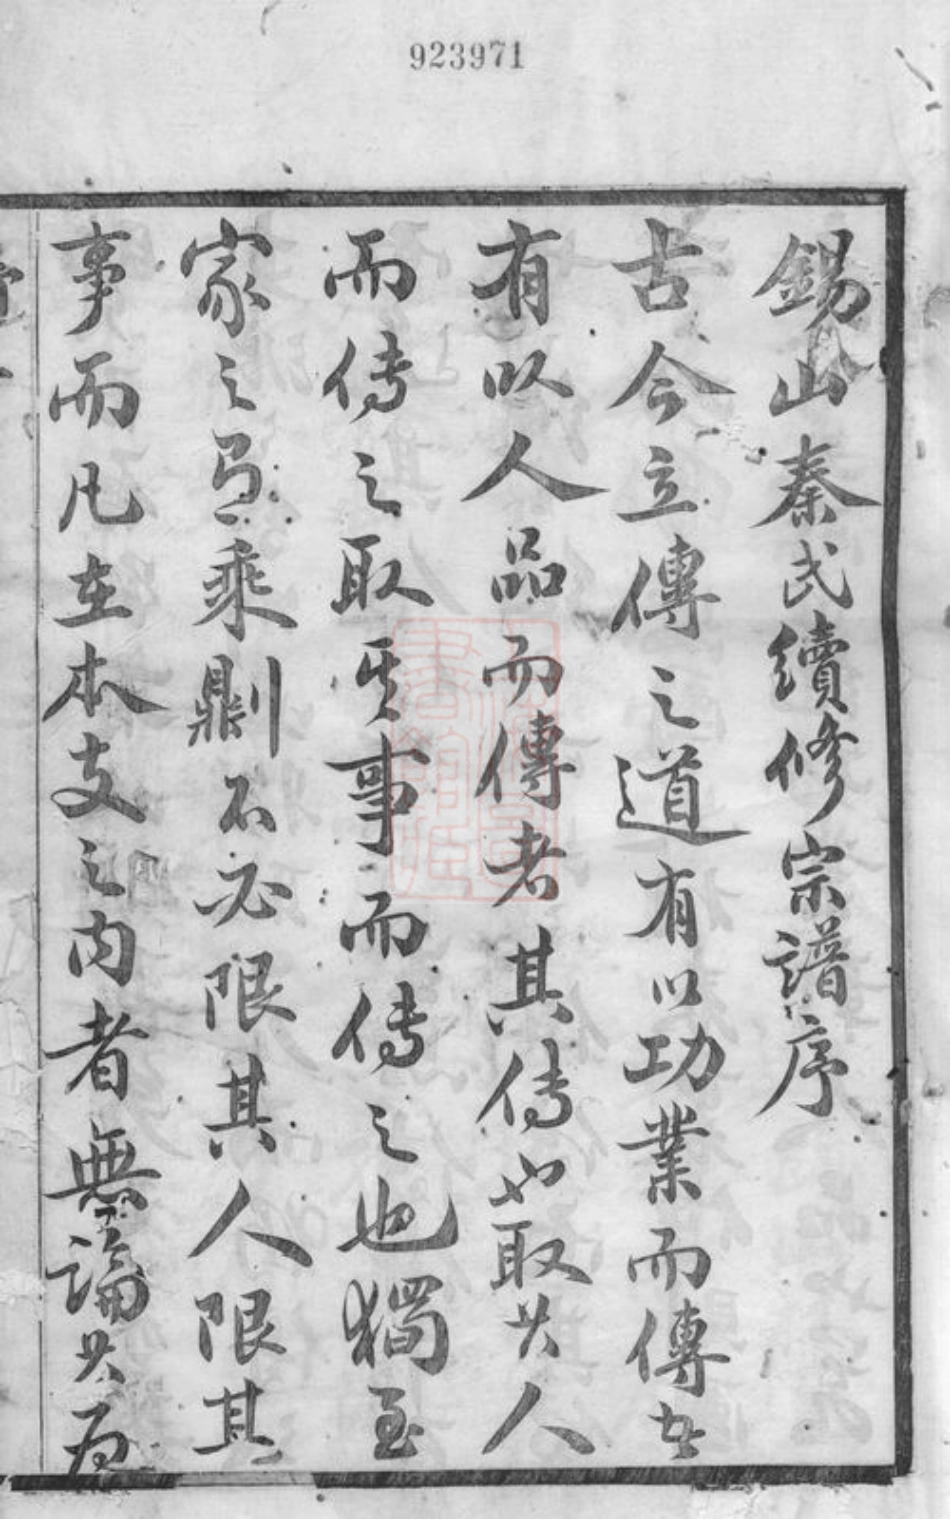 923971
錫山秦氏續修宗譜序
古今立傳之道有以功業而傳者
有以人品而傳者其傳也取其人
而傳之取其事而傳之也獨至
家之乘則不必限其人限其
事而凡在本支之内者無論其為